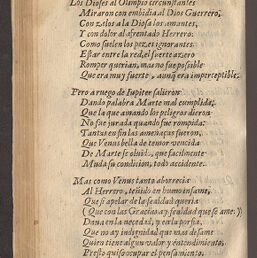 Los Dioses al Olimpio circunstantes
Miraron con embidia al Dios Guerrero,
Con zelos a la Diosa los amantes,
Y con dolor al afrentado Herrero:
Como suelen los pezes ignorantes
Estar entre la red, el fuerte azero
Romper querian, mas no fue possible
Que era muy fuerte, aunq̃ era imperceptible.
Pero a ruego de Iupiter salieron
Dando palabra Marte mal cumplida,
Que la que amando los peligros dieron
No fue jurada quando fue rompida:
Tantas en fin las amenaças fueron,
Que Venus bella de temor vencida
De Marte se oluidó, que facilmente
Muda su condicion, todo accidente.
Mas como Venus tanto aborrecia
Al Herrero, teñido en humo infame,
Que si apelar de la fealdad queria
(Que con las Gracias ay fealdad que se ame:)
Daua en la necedad, y en la porfia,
Que no ay indignidad que mas disfame
Quien tiene algun valor y entendimiento,
Presto quiso ocupar el pensamiento.